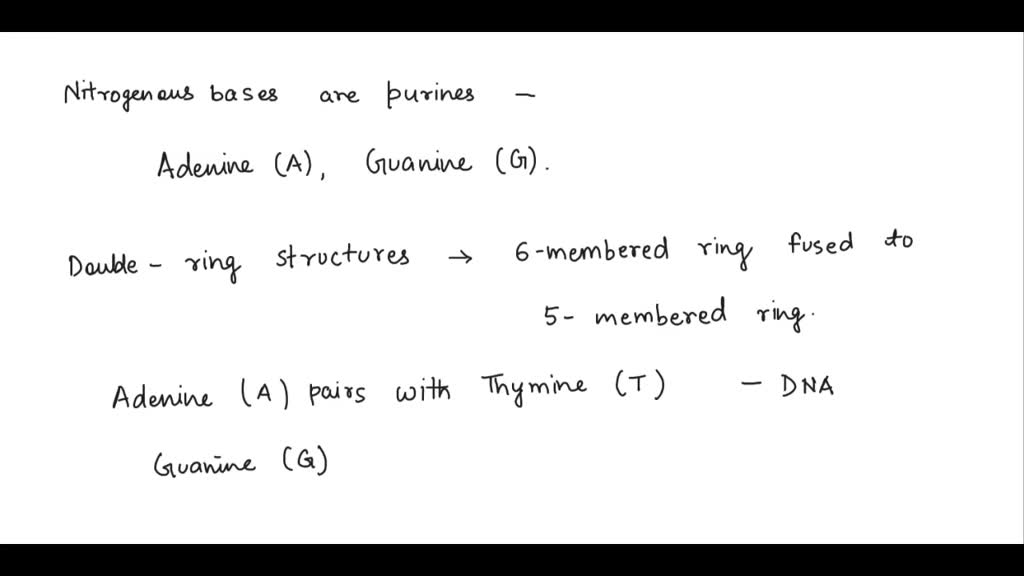 Nitrogenous bases are purines –
Adenine (A), Guanine (G).
Double - ring structures → 6-membered ring fused to
5- membered ring.
Adenine (A) pairs with Thymine (T) – DNA
Guanine (G)